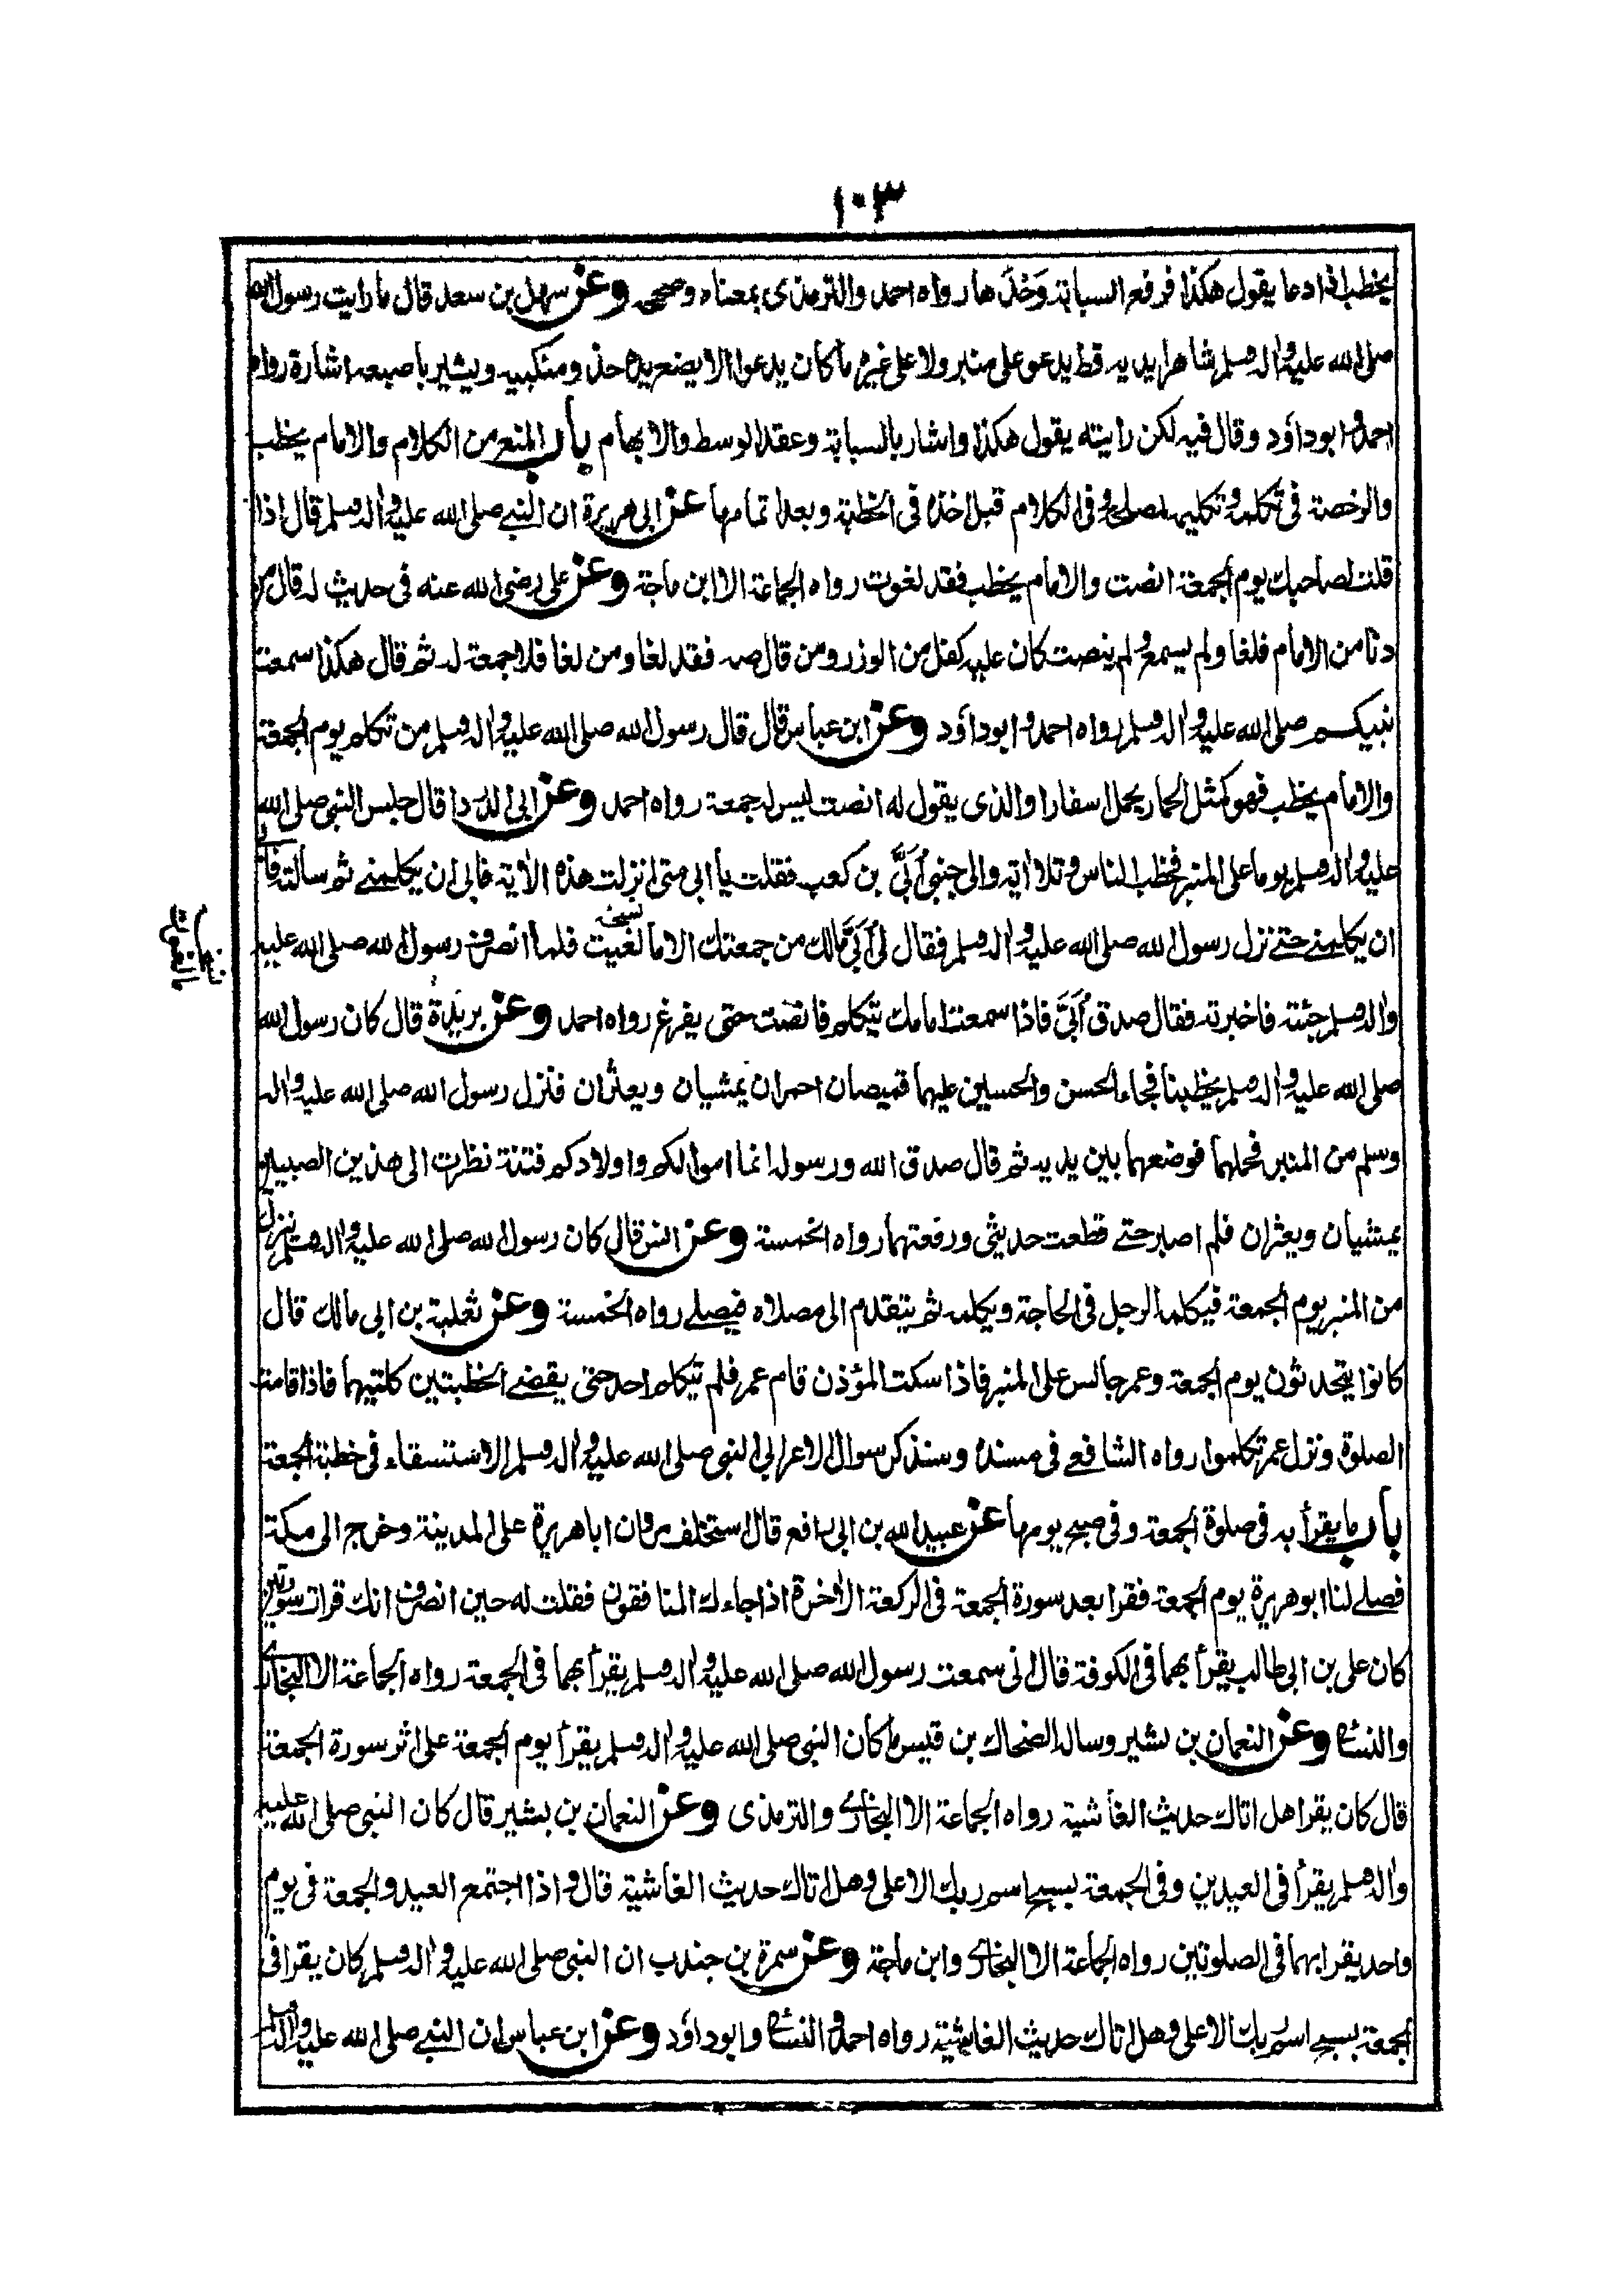 ١٠٣
يخطب اذا دعا يقول هكذا فرفع السبابة وحدها رواه احمد والترمذى بمعناه وصححه وعن سهل بن سعد قال ما رايت رسول الله
صلى الله عليه واله وسلم شاهرا يديه قط يدعو على منبر ولا على غيره ما كان يدعو الا يضع يده حذو منكبيه ويشير باصبعه اشارة رواه
احمد وابو داؤد وقال فيه لكن رايته يقول هكذا واشار بالسبابة وعقد الوسط والابهام باب المنع من الكلام والامام يخطب
والرخصة فى تكلمه وتكليمه لمصلحة وفى الكلام قبل اخذه فى الخطبة وبعد اتمامها عن ابى هريرة ان النبى صلى الله عليه واله وسلم قال اذا
قلت لصاحبك يوم الجمعة انصت والامام يخطب فقد لغوت رواه الجماعة الا ابن ماجة وعن على رضى الله عنه فى حديث له قال من
دنا من الامام فلغا ولم يسمع ولم ينصت كان عليه كفل من الوزر ومن قال صه فقد لغا ومن لغا فلا جمعة له ثم قال هكذا سمعت
نبيكم صلى الله عليه واله وسلم رواه احمد وابو داؤد وعن ابن عباس قال قال رسول الله صلى الله عليه واله وسلم من تكلم يوم الجمعة
والامام يخطب فهو كمثل الحمار يحمل اسفارا والذى يقول له انصت ليس له جمعة رواه احمد وعن ابى الدرداء قال جلس النبى صلى الله
عليه واله وسلم يوما على المنبر فخطب الناس وتلا اية والى جنبى أبىّ بن كعب فقلت يا ابى متى انزلت هذه الاية فابى ان يكلمنى ثم سألته فابى
ان يكلمنى حتى نزل رسول الله صلى الله عليه واله وسلم فقال لى أبىّ مالك من جمعتك الا ما لغيت فلما انصرف رسول الله صلى الله عليه
واله وسلم جئته فاخبرته فقال صدق أبىّ فاذا سمعت امامك يتكلم فانصت حتى يفرغ رواه احمد وعن بريدة قال كان رسول الله
صلى الله عليه واله وسلم يخطبنا فجاء الحسن والحسين عليهما قميصان احمران يمشيان ويعثران فنزل رسول الله صلى الله عليه واله
وسلم من المنبر فحملهما فوضعهما بين يديه ثم قال صدق الله ورسوله انما اموالكم واولادكم فتنة نظرت الى هذين الصبيين
يمشيان ويعثران فلم اصبر حتى قطعت حديثى ورفعتهما رواه الخمسة وعن انس قال كان رسول الله صلى الله عليه واله وسلم ينزل
من المنبر يوم الجمعة فيكلمه الرجل فى الحاجة ويكلمه ثم يتقدم الى مصلاه فيصلى رواه الخمسة وعن ثعلبة بن ابى مالك قال
كانوا يتحدثون يوم الجمعة وعمر جالس على المنبر فاذا سكت المؤذن قام عمر فلم يتكلم احد حتى يقضى الخطبتين كلتيهما فاذا قامت
الصلوة ونزل عمر تكلموا رواه الشافعى فى مسنده وسنذكر سوال الاعرابى النبى صلى الله عليه واله وسلم الاستسقاء فى خطبة الجمعة
باب ما يقرأ به فى صلوة الجمعة وفى صبح يومها عن عبيد الله بن ابى رافع قال استخلف مروان ابا هريرة على المدينة وخرج الى مكة
فصلى لنا ابو هريرة يوم الجمعة فقرا بعد سورة الجمعة فى الركعة الاخرة اذا جاءك المنافقون فقلت له حين انصرف انك قرات سورتين
كان على بن ابى طالب يقرأ بهما فى الكوفة قال انى سمعت رسول الله صلى الله عليه واله وسلم يقرأ بهما فى الجمعة رواه الجماعة الا البخارى
والنسائ وعن النعمان بن بشير وساله الضحاك بن قيس ما كان النبى صلى الله عليه واله وسلم يقرأ يوم الجمعة على اثر سورة الجمعة
قال كان يقرا هل اتاك حديث الغاشية رواه الجماعة الا البخارى والترمذى وعن النعمان بن بشير قال كان النبى صلى الله عليه
واله وسلم يقرأ فى العيدين وفى الجمعة بسبح اسم ربك الاعلى وهل اتاك حديث الغاشية قال واذا اجتمع العيد والجمعة فى يوم
واحد يقرا بهما فى الصلوتين رواه الجماعة الا البخارى وابن ماجة وعن سمرة بن جندب ان النبى صلى الله عليه واله وسلم كان يقرا فى
الجمعة بسبح اسم ربك الاعلى وهل اتاك حديث الغاشية رواه احمد والنسائ وابو داؤد وعن ابن عباس ان النبى صلى الله عليه واله وسلم